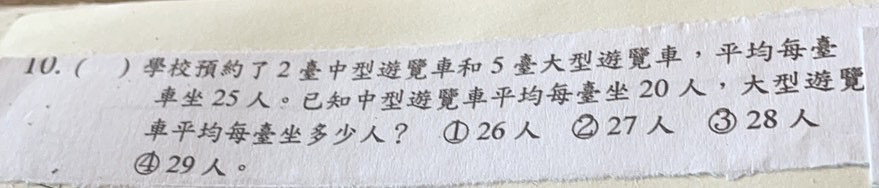 10. (　) 學校預約了 2 臺中型遊覽車和 5 臺大型遊覽車，平均每臺
車坐 25 人。已知中型遊覽車平均每臺坐 20 人，大型遊覽
車平均每臺坐多少人？　① 26 人　② 27 人　③ 28 人
④ 29 人。